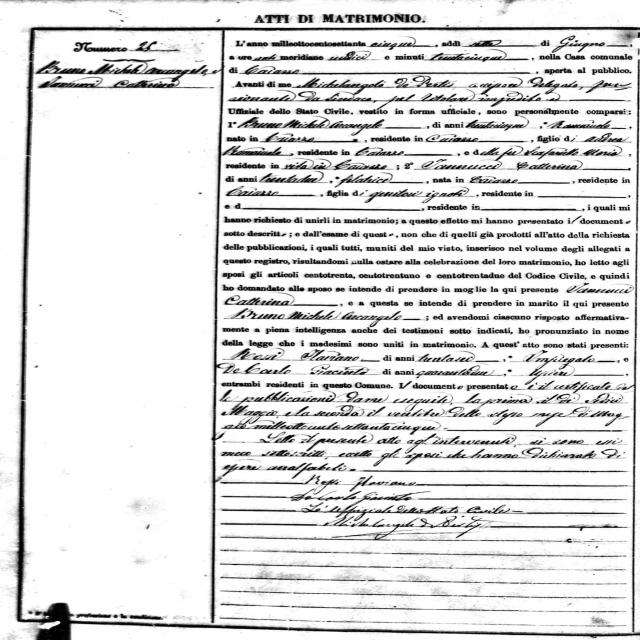 ATTI DI MATRIMONIO.
Numero 25
Bruno Michele Arcangelo, e
Iannucci Catterina
L'anno milleottocentosettanta cinque, addì sette di Giugno
a ore anti meridiane undici e minuti trentacinque, nella Casa comunale
di Caiazzo aperta al pubblico.
Avanti di me Michelangelo De
zionante da Sindaco, pel titolare impedito e
Uffiziale dello Stato Civile, vestito in forma uffiziale, sono personalmente comparsi:
1° Bruno Michele Arcangelo, di anni trentacinque,
nato in Caiazzo, residente in Caiazzo, figlio di Andrea
residente in Caiazzo, e della fu Maria
residente in vita in Caiazzo; 2° Iannucci Catterina
di anni filatrice, nata in Caiazzo, residente in
Caiazzo, figlia di genitori ignoti, residente in
e d residente in , i quali mi
hanno richiesto di unirli in matrimonio; a questo effetto mi hanno presentato i document
sotto descritt ; e dall'esame di quest , non che di quelli già prodotti all'atto della richiesta
delle pubblicazioni, i quali tutti, muniti del mio visto, inserisco nel volume degli allegati a
questo registro, risultandomi nulla ostare alla celebrazione del loro matrimonio, ho letto agli
sposi gli articoli centotrenta, centotrentuno e centotrentadue del Codice Civile, e quindi
ho domandato allo sposo se intende di prendere in moglie la qui presente Iannucci
Catterina, e a questa se intende di prendere in marito il qui presente
Bruno Michele Arcangelo; ed avendomi ciascuno risposto affermativa-
mente a piena intelligenza anche dei testimoni sotto indicati, ho pronunziato in nome
della legge che i medesimi sono uniti in matrimonio. A quest' atto sono stati presenti:
Rossi Flaviano di anni trentasei, Impiegato, e
De Carlo Giacinto di anni quarantadue, usciere
entrambi residenti in questo Comune. I document presentat è il certificato del
le pubblicazioni da me eseguite, la prima il dì sedici
Maggio, e la seconda il ventitre dello stesso mese di Mag
gio milleottocentosettantacinque.
Letto il presente atto agl'intervenuti, si sono essi
meco sottoscritti, eccetto gli sposi che hanno dichiarato di
essere analfabeti.
Rossi Flaviano
De Carlo Giacinto
L'Uffiziale dello Stato Civile
Michelangelo De